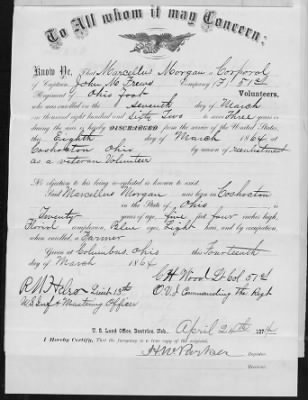 To All whom it may Concern:
Know Ye, That Marcellus Morgan, Corporal
of Captain John M. Company F, 51st
Regiment of Ohio Foot Volunteers,
who was enrolled on the Seventh day of March
one thousand eight hundred and Sixty Two to serve Three years
during the war, is hereby DISCHARGED from the service of the United States,
this Eighth day of March 1864 at
Coshocton Ohio by reason of reenlistment
as a veteran Volunteer
No objection to his being re-enlisted is known to exist.
Said Marcellus Morgan was born in Coshocton
in the State of Ohio is
Twenty years of age, five feet four inches high,
Florid complexion, Blue eyes, Light hair, and by occupation,
when enrolled, a Farmer
Given at Columbus, Ohio this Fourteenth
day of March 1864
C H Wood Lt Col 51st
Lieut 15th O.V.I Commanding the Regt
U.S. Inf & Mustering Officer
U. S. Land Office, Nebr. April 24th 1874
I Hereby Certify, That the foregoing is a true copy of the original.
H W Parker
Register.
Receiver.